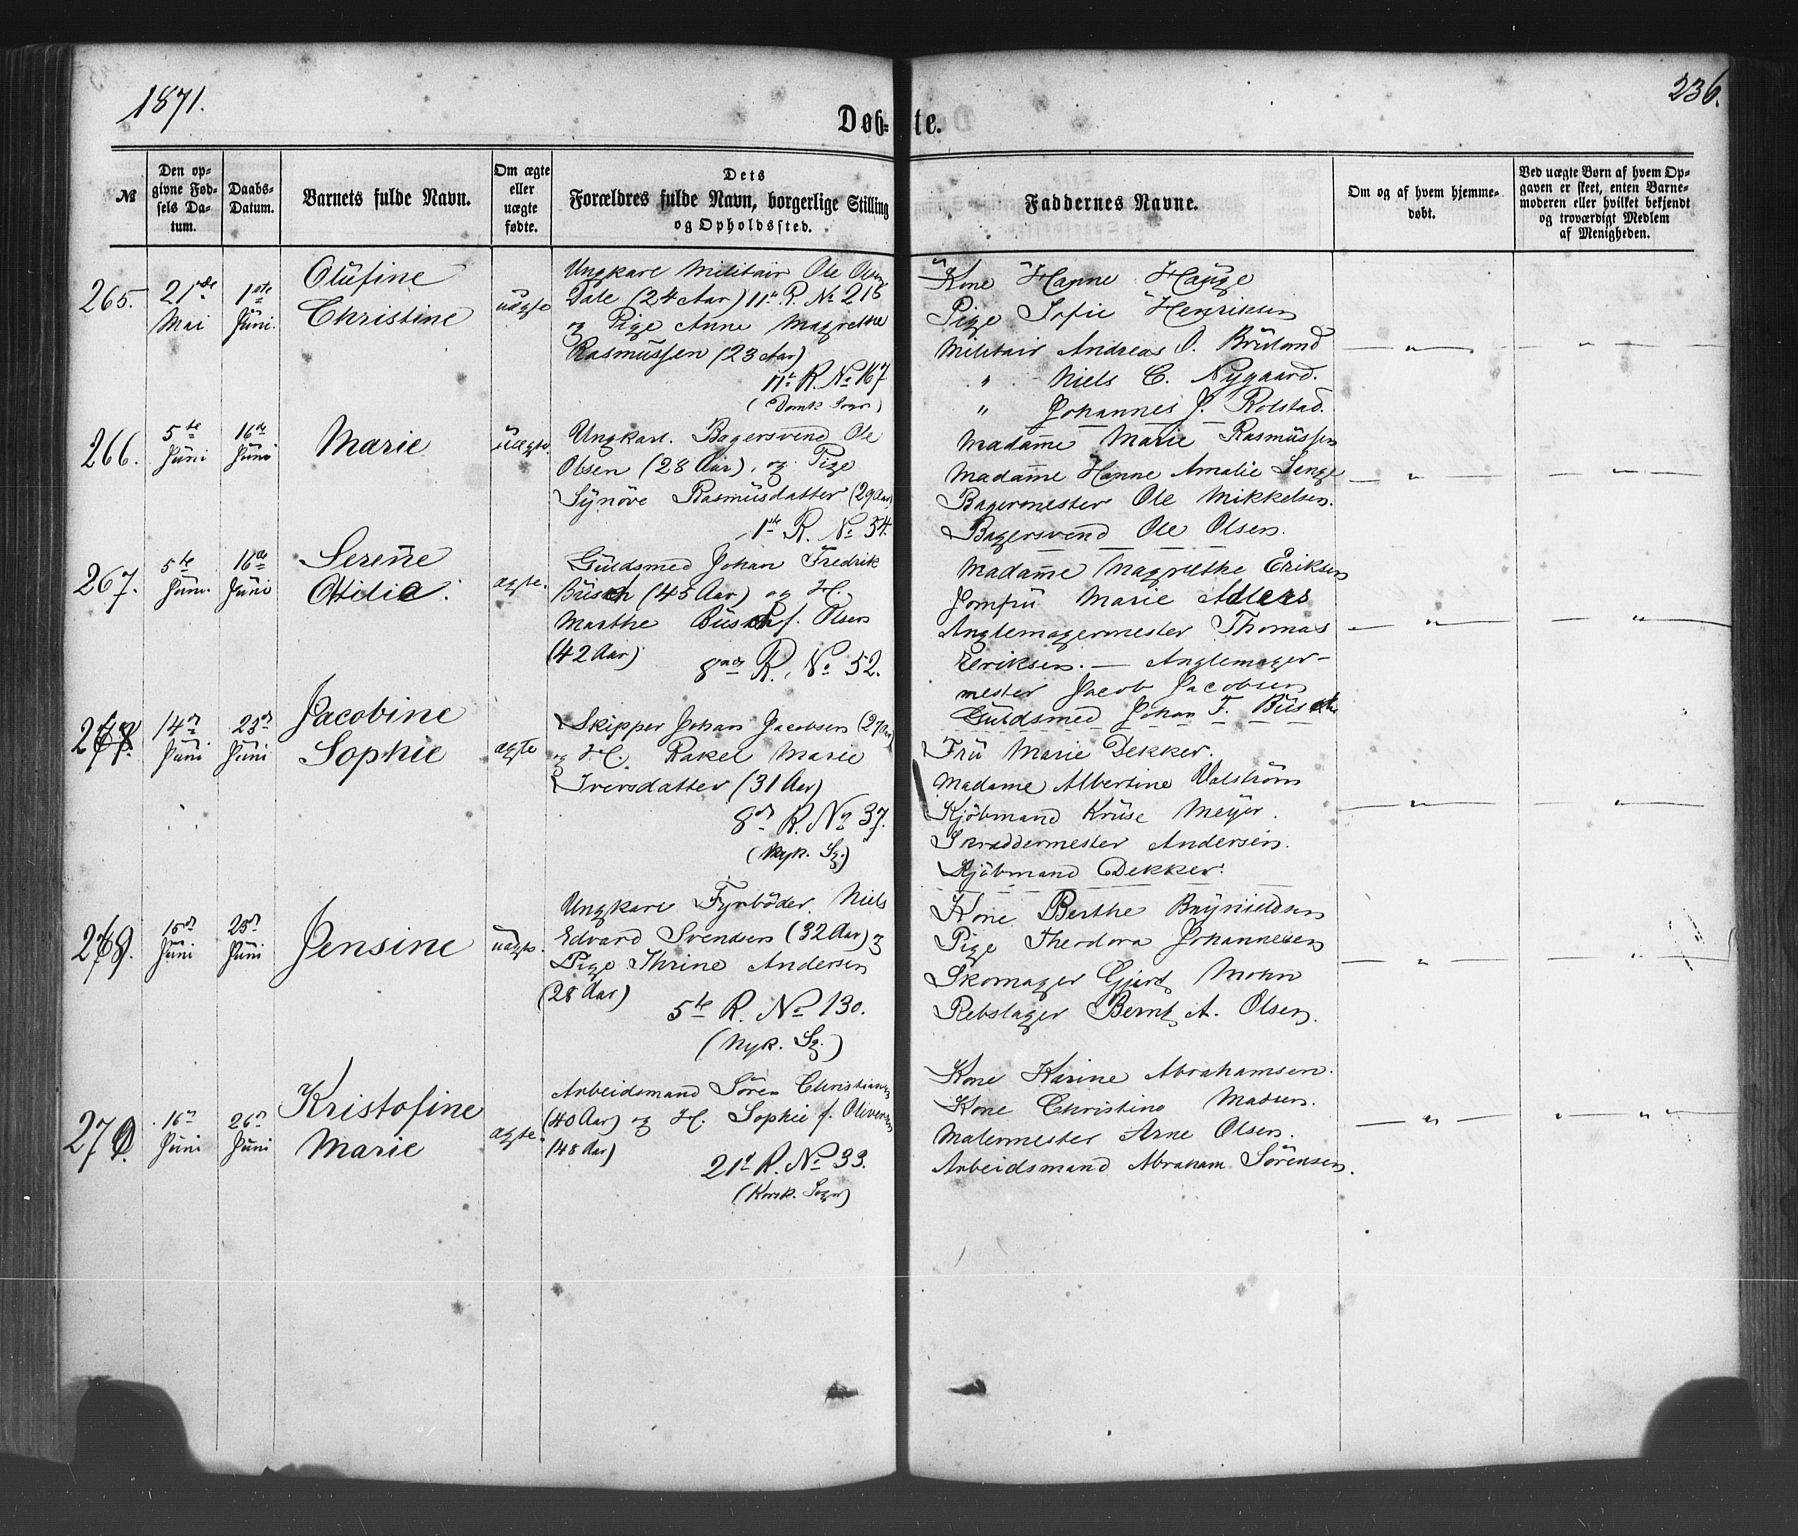 1871.
236.
Døb-te.
№
Den op-
givne Fød-
sels Da-
tum.
Daabs-
Datum.
Barnets fulde Navn.
Om ægte
eller
uægte
fødte.
Dets
Forældres fulde Navn, borgerlige Stilling
og Opholdssted.
Faddernes Navne.
Om og af hvem hjemme-
døbt.
Ved uægte Børn af hvem Op-
gaven er skeet, enten Barne-
moderen eller hvilket bekjendt
og troværdigt Medlem
af Menigheden.
265.
21de
Mai
1ste
Juni.
Olufine
Christine
uægte
Ungkarl Militair Ole Olsen
Dale (24 Aar) 11te R. No 216
og Pige Anne Magrethe
Rasmussen (23 Aar)
11te R. No 167
(Domk. Sogn)
Kone Hanne Hauge
Pige Sofie Henriksen
Militair Andreas O. Bruland
" Niels C. Nygaard.
" Johannes J. Rolstad.
— " —
— " —
266.
5te
Juni
16de
Juni
Marie
uægte.
Ungkarl. Bagersvend Ole
Olsen (28 Aar), og Pige
Synöve Rasmusdatter (29 Aar)
1ste R. No 34.
Madame Marie Rasmussen
Madame Hanne Amalie Lenge
Bagermester Ole Mikkelsen.
Bagersvend Ole Olsen.
— " —
— " —
267.
5te
Juni.
16de
Juni
Serene
Otilie.
ægte.
Guldsmed Johan Fredrik
Busch (45 Aar) og H.
Marthe Busch f. Olsen
(42 Aar)
8de R. No 52.
Madame Magrethe Eriksen
Jomfru Marie Ahlers
Anglemagermester Thomas
Eriksen. — Anglemager-
mester Jacob Jacobsen
Guldsmed Johan F. Busch
— " —
— " —
268.
14de
Juni
23de
Juni
Jacobine
Sophie
ægte
Skipper Johan Jacobsen (27 Aar)
og H. Rakel Marie
Iversdatter (31 Aar)
8de R. No 37.
(Nyk. Sg.)
Fru Marie Dekker.
Madame Albertine Valström
Kjöbmand Kruse Meyer.
Skræddermester Andersen.
Kjöbmand Dekker.
— " —
— " —
269.
15de
Juni
25de
Juni
Jensine
uægte.
Ungkarl Fyrböder. Niels
Edvard Svendsen (32 Aar) og
Pige Thrine Andersen
(28 Aar)
5te R. No 130.
(Nyk. Sg.)
Kone Berthe Brynieldsen
Pige Theodora Johannesen
Skomager Gjert Mohn
Rebslager Bernt A. Olsen.
— " —
— " —
270.
16de
Juni
26de
Juni
Kristofine
Marie
ægte.
Arbeidsmand Sören Christiansen
(40 Aar) og H. Sophie f. Oliversen
(48 Aar)
21de R. No 33.
(Korsk. Sogn)
Kone Karine Abrahamsen.
Kone Christine Madsen.
Malermester Arne Olsen.
Arbeidsmand Abraham Sörensen.
— " —
— " —